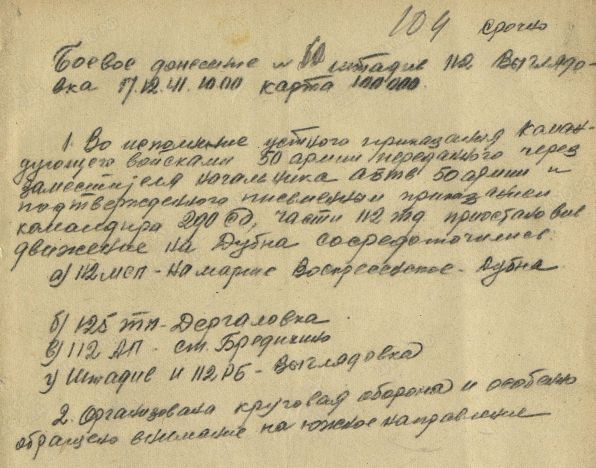 104 Срочно
Боевое донесение № 60 штадив 112 Выглядо-
вка 17.12.41. 10.00 карта 100 000.
1. Во исполнение устного приказания коман-
дующего войсками 50 армии переданного через
заместителя начальника автв 50 армии и
подтвержденного письменным приказанием
командира 290 сд, части 112 тд приостановив
движение на Дубна сосредоточились:
а) 112 мсп - на марше Воскресенское - Дубна
б) 125 тп - Дергаловка
в) 112 АП - ст. Бредихино
г) Штадив и 112 РБ - Выглядовка
2. Организована круговая оборона и особенно
обращено внимание на южное направление